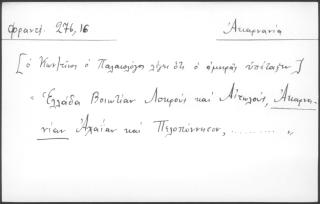 Φραντζ. 276,16 Ἀκαρνανία
[ὁ Κων/τῖνος ὁ Παλαιολόγος λέγει ὅτι ὁ ἀμηρᾶς ὑπέταξεν]
" Ἑλλάδα Βοιωτίαν Λοκρούς καί Αἰτωλούς, Ἀκαρνα-
νίαν Ἀχαΐαν καί Πελοπόννησον, .......... "